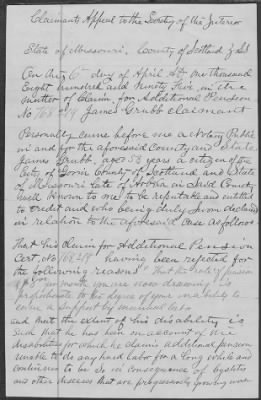 Claimants Appeal to the Secretary of the Interior
State of Missouri, County of Scotland } S.S
On this 6th day of April A.D. one thousand
Eight hundred and Ninety Five in the
matter of Claim, for Additional Pension
No 768 219 James Grubb claimant
Personally came before me a Notary Public
in and for the aforesaid County and State
James Grubb, aged 53 years a citizen of the
City of Gorin County of Scotland and State
of Missouri Late of in Said County
well known to me to be reputable and entitled
to credit and who being duly sworn declares
in relation to the aforesaid case as follows
That his Claim for Additional Pension
Cert. No 768 219 having been rejected for
the following reasons "that the rate of pension
per month you are now drawing is
proportionate to the degree of your inability to
earn a support by manual labor
and that the extent of his disability is
such that he has been on account of the
disability for which he claims additional pension
unable to do any hard labor for a long while and
continues to be so in consequence of
and other diseases that are progressively growing worse